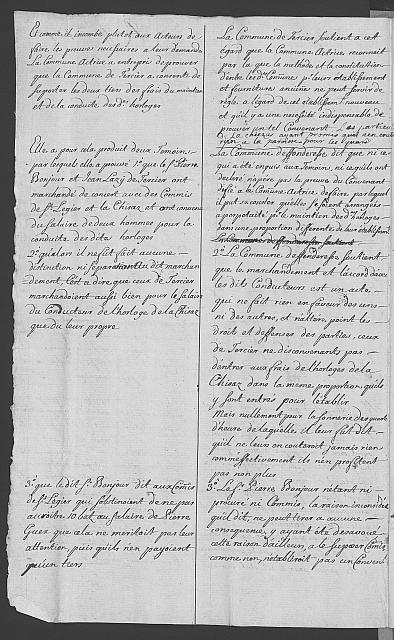 Et comme il incombe plutot aux Acteurs de
faire les preuves necessaires a leur demande
La Commune Actrice a entrepris de prouver
que la Commune de Tercier a consenti de
suporter les deux tiers des frais du maintien
et de la conduite des dts horloges
Elle a pour cela produit deux Temoins,
par lesquels elle a prouvé 1o que le Sr Pierre
Bonjour et Jean Lazy de Tercier ont
marchandé de concert avec des Commis
de St Legier et la Chisaz et ont convenu
du salaire de deux hommes pour la
conduite des dits horloges
2o qu'alors il ne fut fait aucune
distinction ni separation dit marchan
dement, C'est a dire que ceux de Tercier
marchandoient aussi bien pour le salaire
du Conducteur de l'horloge de la Chisaz
que du leur propre
3o que le dit Sr Bonjour dit aux Comis
de St Legier qui s'obstinoient de ne pas
accroitre 10 bat au salaire de Pierre
Guex que cela ne meritoit pas leur
attention, puis qu'ils n'en payoient
qu'un tiers
La Commune de Tercier soutient a cet
égard que la Commune Actrice reconnoit
par la que la methode et la constitution
d'entre les d. Comunes pr leurs etablissement
et fournitures anciens ne peut servir de
règle a legard de cet etablissemt nouveau
et qu'il y a une necessité indispensable de
prouver un tel Convenant
La Commune deffenderesse dit que ni ce
qui a été depuis aux Temoins, ni ce qu'ils ont
declaré n'opère pas la preuve du Convenant
par lequel
il put se conster qu'elles se soient arrangées
a perpetuité pr le maintien des d. horloges
dans une proportion differente de leur etablissemt
2o La Commune deffenderesse soutient
que le marchandement et l'accord avec
les dits Conducteurs est un acte
qui ne fait rien en faveur des uns
ni des autres, et n'altère point les
droits et deffenses des parties, ceux
de Tercier ne disconvenants pas
d'entrer aux frais de l'horloge de la
Chisaz dans la meme proportion qu'ils
y sont entrés pour l'etablir
Mais nullement pour la sonnerie des quarts
d'heure de laquelle il leur fut dit
qu'il ne leur en couteroit jamais rien
comme effectivement ils n'en profitent
pas non plus
3o Le Sr Pierre Bonjour n'etant ni
procuré ni Commis, la raison
qu'il dit, ne peut tirer a aucune
consequence, y ayant été desavoué
cette raison d'ailleurs, a le suposer Comis
comme non, n'etabliroit pas un Convent